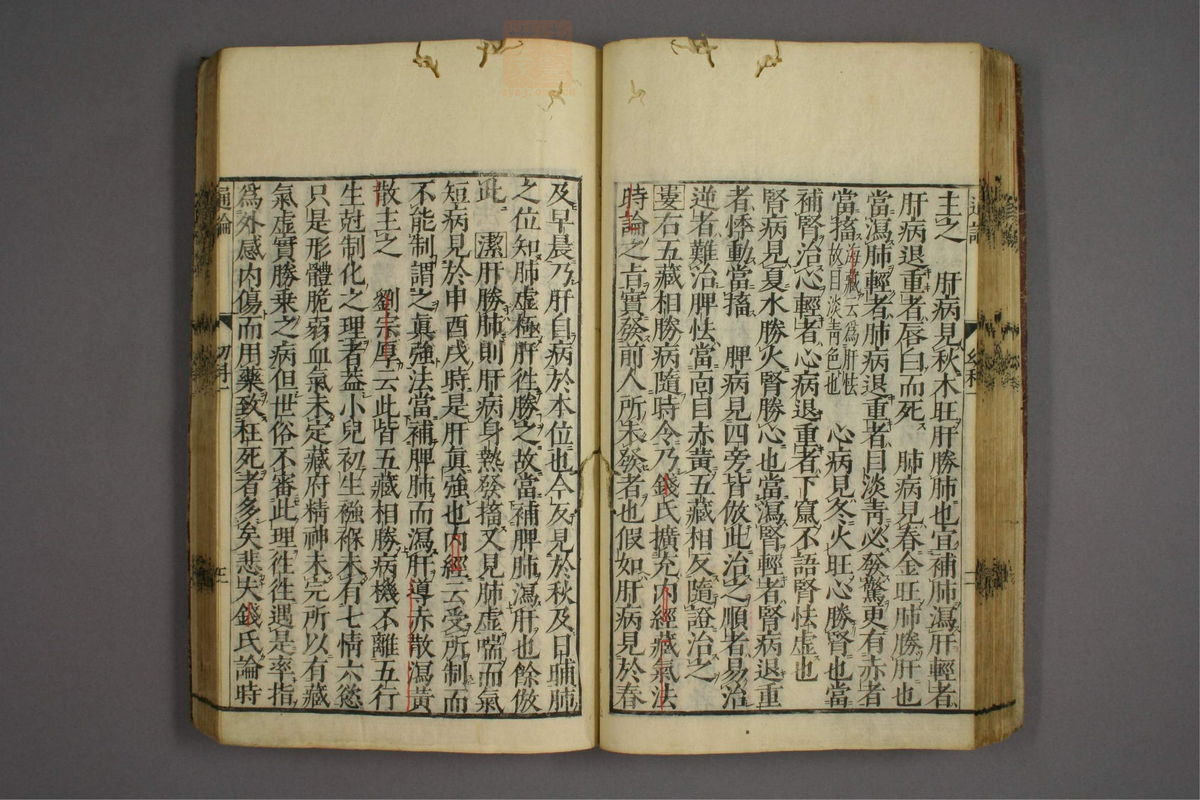 主之　肝病見秋木旺肝勝肺也宜補肺瀉肝輕者
肝病退重者唇白而死　肺病見春金旺肺勝肝也
當瀉肺輕者肺病退重者目淡青必發驚更有赤者
當搐海藏云爲肝怯故目淡青色也　心病見冬火旺心勝腎也當
補腎治心輕者心病退重者下竄不語腎怯虛也
腎病見夏水勝火腎勝心也當瀉腎輕者腎病退重
者悸動當搐　脾病見四旁皆倣此治之順者易治
逆者難治脾怯當面目赤黃五藏相反隨證治之
婁右五藏相勝病隨時令乃錢氏擴充內經藏氣法
時論之旨實發前人所未發者也假如肝病見於春
及早晨乃肝自病於本位也今反見於秋及日晡肺
之位知肺虛極肝徃勝之故當補脾肺瀉肝也餘倣
此　潔肝勝肺則肝病身熱發搐又見肺虛喘而氣
短病見於申酉戌時是肝眞強也內經云受所制而
不能制謂之眞強法當補脾肺而瀉肝導赤散瀉黃
散主之　劉宗厚云此皆五藏相勝病機不離五行
生尅制化之理者盖小兒初生襁褓未有七情六慾
只是形體脆弱血氣未定藏府精神未完所以有藏
氣虛實勝乗之病但世俗不審此理徃徃遇是率指
爲外感內傷而用藥致枉死者多矣悲夫錢氏論時
通論
幼科一